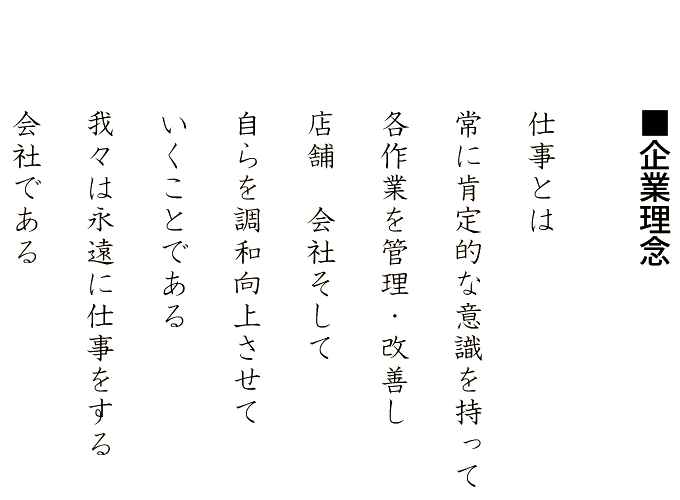 ■企業理念
仕事とは
常に肯定的な意識を持って
各作業を管理・改善し
店舗　会社そして
自らを調和向上させて
いくことである
我々は永遠に仕事をする
会社である